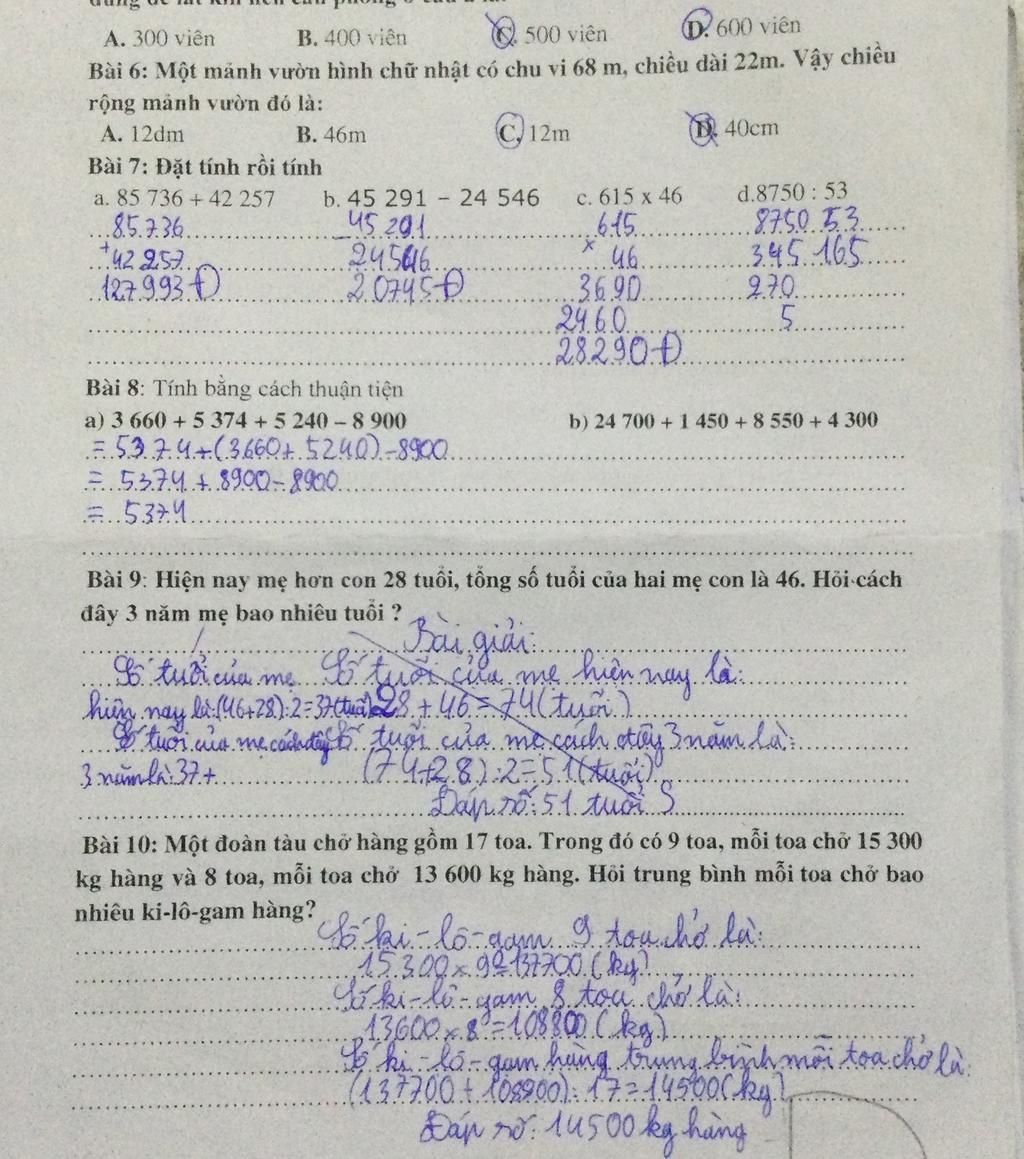 A. 300 viên B. 400 viên C. 500 viên D. 600 viên
Bài 6: Một mảnh vườn hình chữ nhật có chu vi 68 m, chiều dài 22m. Vậy chiều
rộng mảnh vườn đó là:
A. 12dm B. 46m C. 12m D. 40cm
Bài 7: Đặt tính rồi tính
a. 85 736 + 42 257 b. 45 291 – 24 546 c. 615 x 46 d.8750 : 53
85736 45291 615 8750 53
+ 42257 – 24546 x 46 345 165
127993 Đ 20745 Đ 3690 270
2460 5
28290 Đ
Bài 8: Tính bằng cách thuận tiện
a) 3 660 + 5 374 + 5 240 – 8 900 b) 24 700 + 1 450 + 8 550 + 4 300
= 5374+(3660+5240)-8900
= 5374+8900-8900
= 5374
Bài 9: Hiện nay mẹ hơn con 28 tuổi, tổng số tuổi của hai mẹ con là 46. Hỏi cách
đây 3 năm mẹ bao nhiêu tuổi ?
Bài giải:
Số tuổi của mẹ Số tuổi của mẹ hiện nay là:
hiện nay là:(46+28):2=37(tuổi) 28+46=74(tuổi)
Số tuổi của mẹ cách đây Số tuổi của mẹ cách đây 3 năm là:
3 năm là:37+ (74+28):2=51(tuổi)
Đáp số:51 tuổi S
Bài 10: Một đoàn tàu chở hàng gồm 17 toa. Trong đó có 9 toa, mỗi toa chở 15 300
kg hàng và 8 toa, mỗi toa chở 13 600 kg hàng. Hỏi trung bình mỗi toa chở bao
nhiêu ki-lô-gam hàng?
Số ki-lô-gam 9 toa chở là:
15300x9=137700(kg)
Số ki-lô-gam 8 toa chở là:
13600x8=108800(kg)
Số ki-lô-gam hàng trung bình mỗi toa chở là:
(137700+108800):17=14500(kg)
Đáp số:14500kg hàng